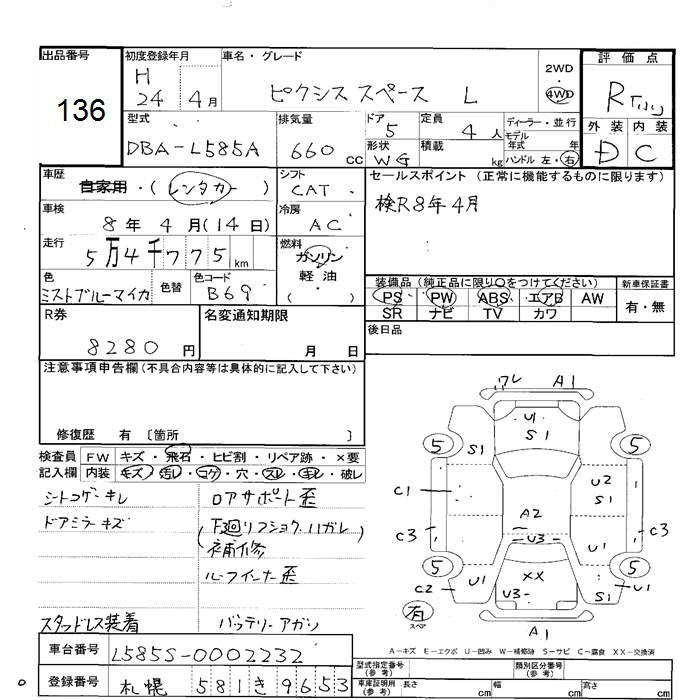 出品番号
136
初度登録年月
H
24 4月
車名・グレード
ピクシス スペース L
2WD
4WD
評価点
R
外装 内装
D C
型式
DBA-L585A
排気量
660 cc
ドア
5
形状
WG
定員
4人
積載
kg
ディーラー・並行
モデル
年式 年
ハンドル 左・右
車歴
自家用・(レンタカー)
シフト
CAT
セールスポイント (正常に機能するものに限ります)
検R8年4月
車検
8年 4月(14日)
冷房
AC
走行
5万4千775km
燃料
ガソリン
軽油
( )
色
ミストブルーマイカ
色替
色コード
B69
装備品(純正品に限り○をつけてください)
PS PW ABS エアB AW
SR ナビ TV カワ
新車保証書
有・無
R券
8280円
名変通知期限
月 日
後日品
注意事項申告欄(不具合内容等は具体的に記入して下さい)
修復歴 有 〔箇所 〕
検査員 FW キズ・飛石・ヒビ割・リペア跡・×要
記入欄 内装 キズ・汚レ・コゲ・穴・スレ・キレ・破レ
シートコゲ・キレ
ドアミラーキズ
スタッドレス装着
ロアサポート歪
(下廻リフショク、ハガレ
補修)
ルーフインナー歪
バッテリーアガリ
ワレ A1
U1
S1
5 S1 S1 5
U2
S1
C1
A2
C3 U3 C3
U1
5 5
XX
U1
C2 U3 S1 U1
有
スペア
A1
A-キズ E-エクボ U-凹み W-補修跡 S-サビ C-腐食 XX-交換済
車台番号
L585S-0002232
登録番号
札幌 581き9653
型式指定番号
(参考)
類別区分番号
(参考)
車庫証明用
(参考)
長さ cm 幅 cm 高さ cm